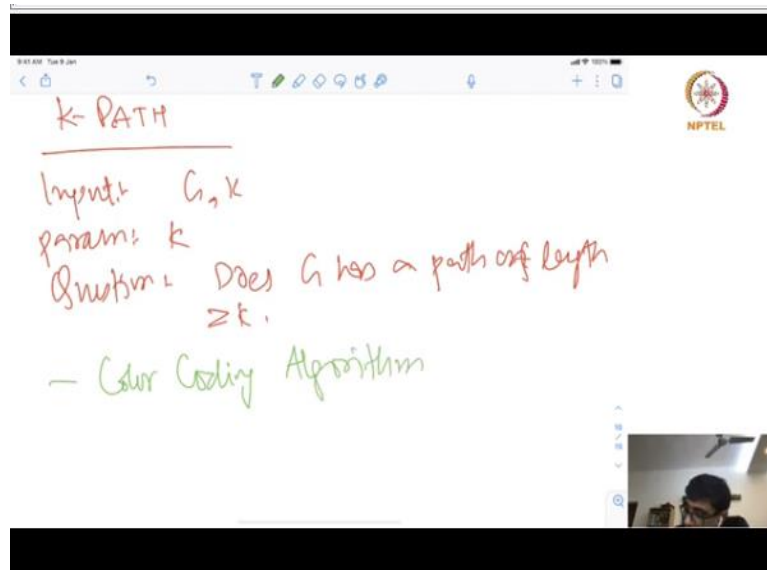 9:41 AM Tue 9 Jan
100%
NPTEL
K-PATH
Input: G, K
param: K
Question: Does G has a path of length
≥k.
- Color Coding Algorithm